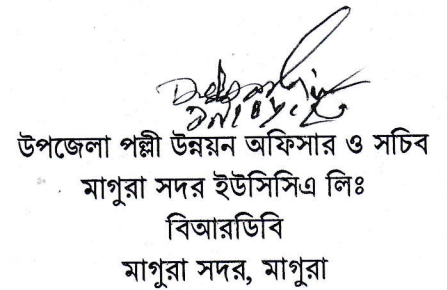 উপজেলা পল্লী উন্নয়ন অফিসার ও সচিব
মাগুরা সদর ইউসিসিএ লিঃ
বিআরডিবি
মাগুরা সদর, মাগুরা